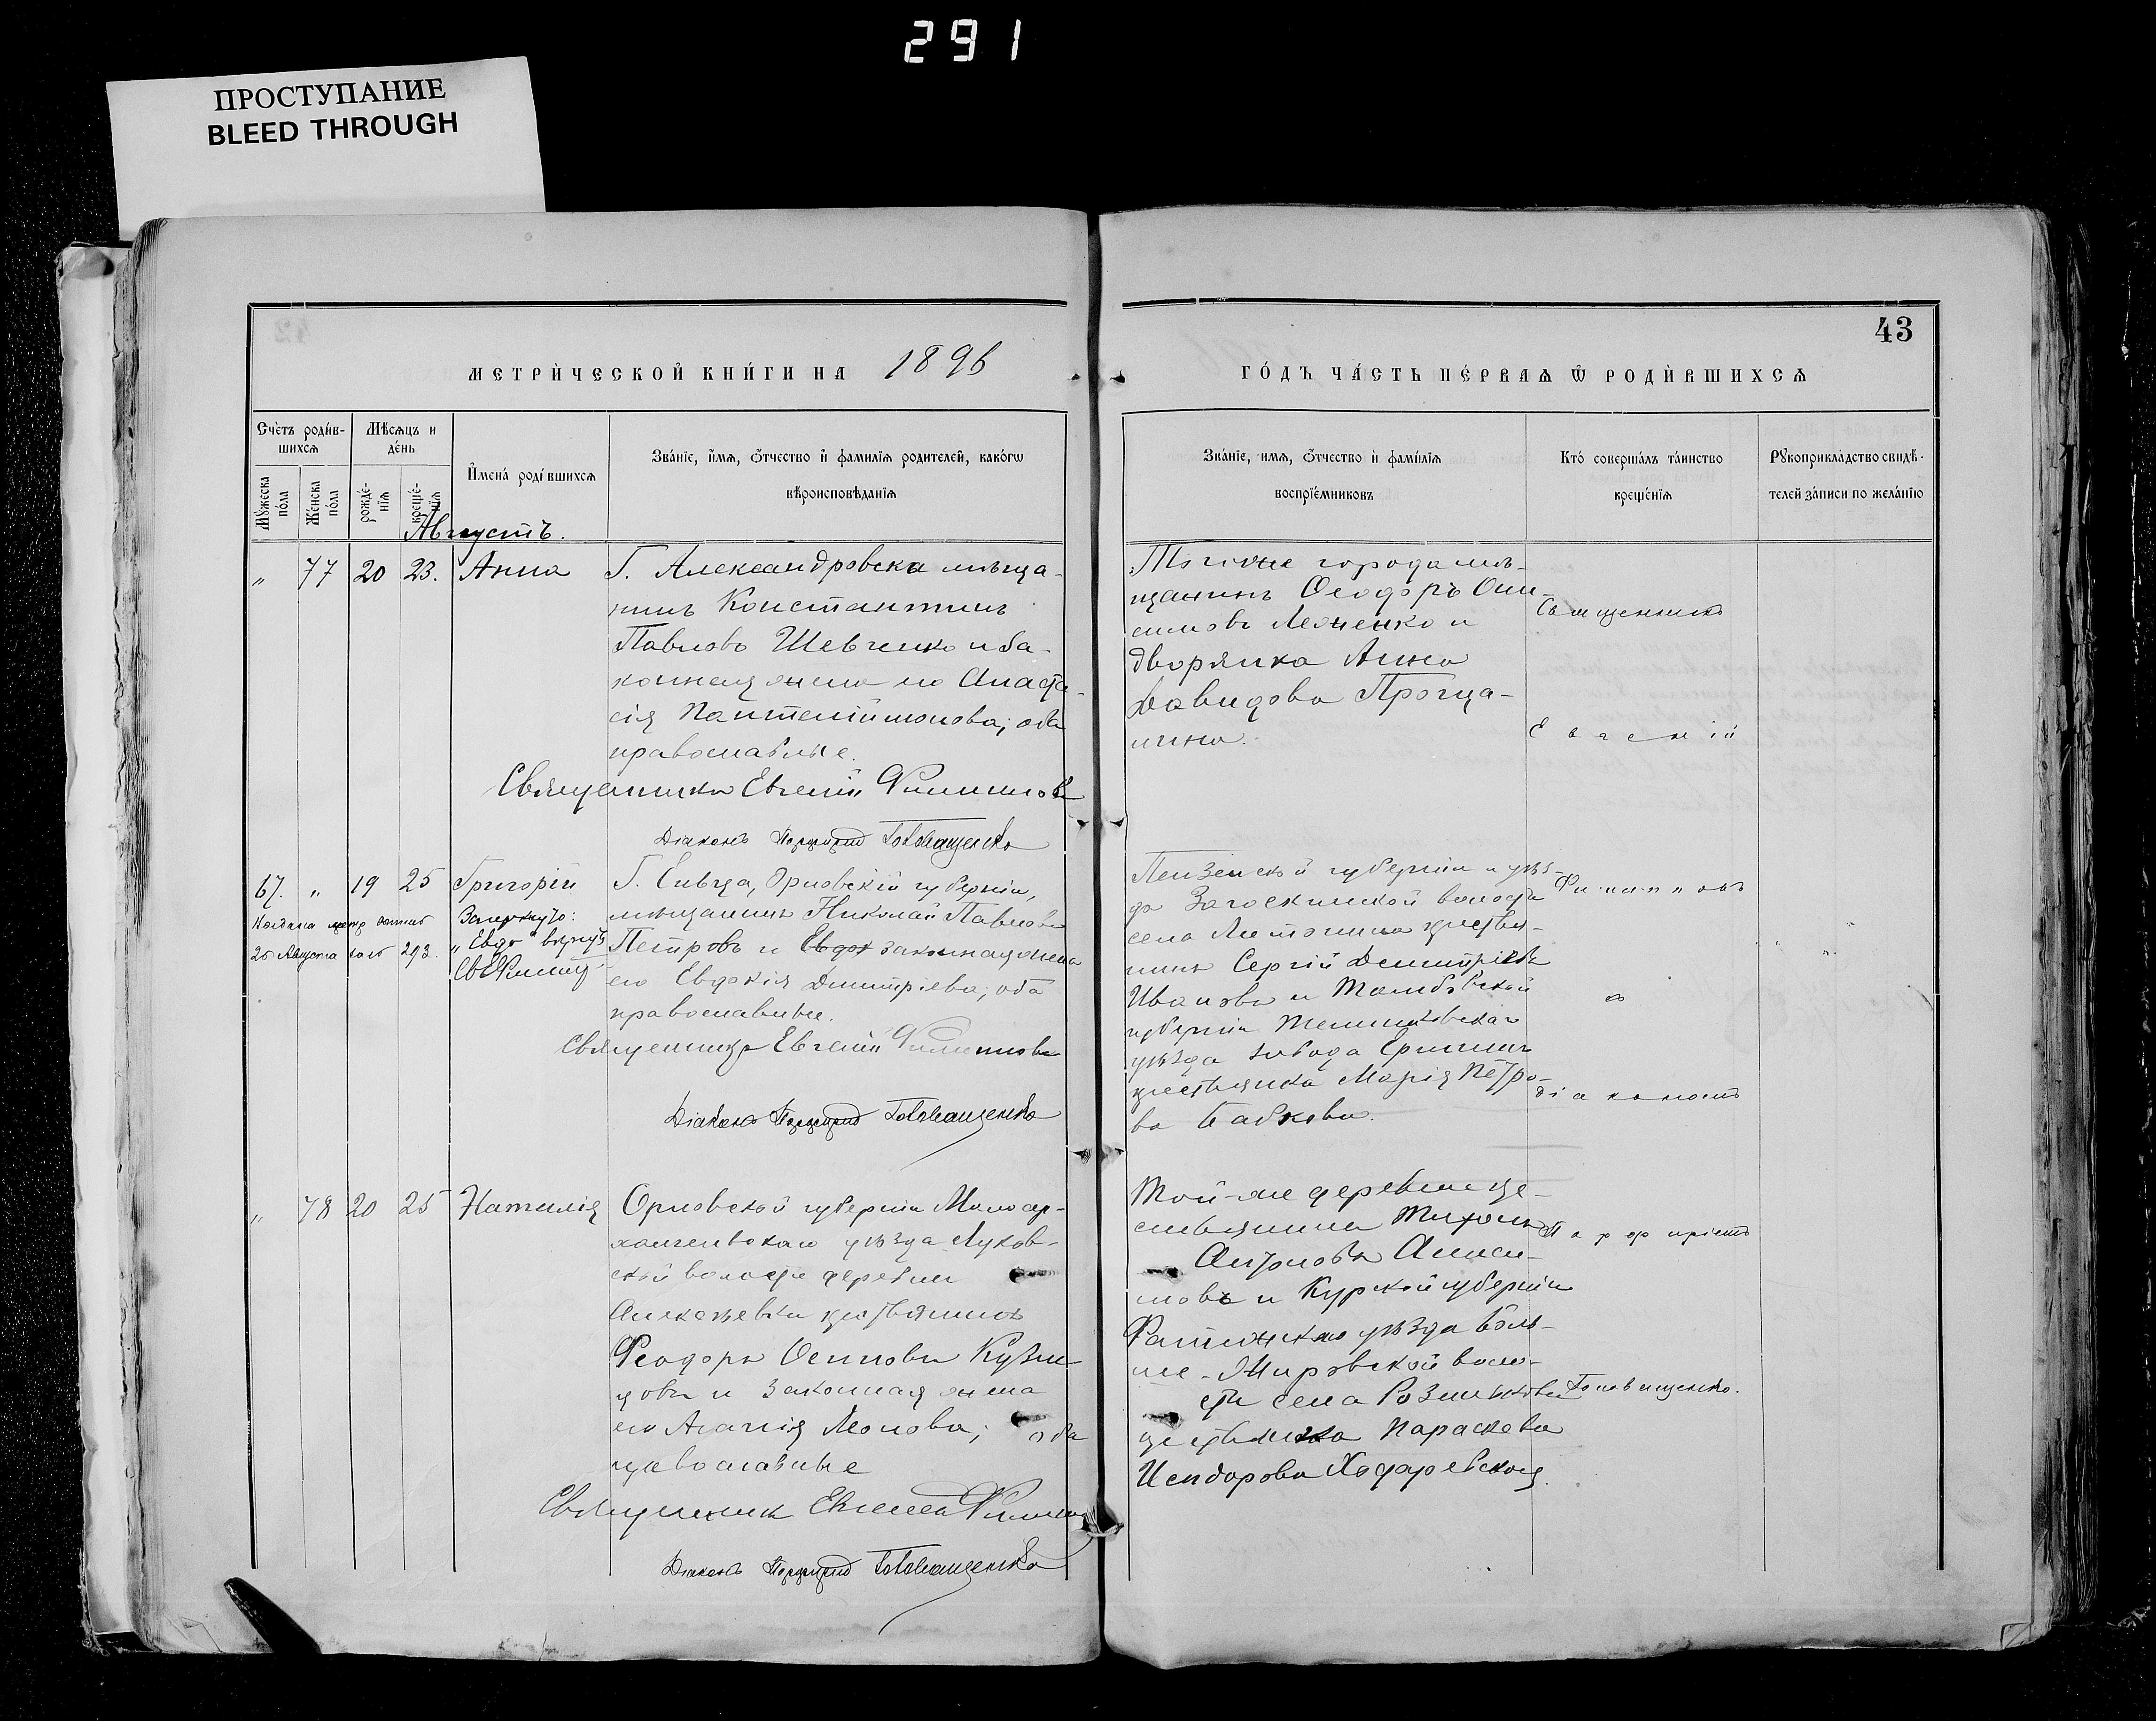 291
ПРОСТУПАНИЕ
BLEED THROUGH
43
МЕТРИ́ЧЕСКОЙ КНИ́ГИ НА 1896
ГО́ДЪ ЧА́СТЬ ПЕ́РВАѦ Ѿ РОДИ́ВШИХСѦ
Счетъ роди́в-
шихсѧ
Мѣсѧцъ и
де́нь
Мꙋжеска
по́ла
Же́нска
по́ла
рожде́-
нїѧ
креще́-
нїѧ
И҆мена́ роди́вшихсѧ
Зва́нїе, и҆́мѧ, ѻ҆́тчество и҆ фами́лїѧ родителей, како́гѡ
вѣроисповѣданїѧ
Зва́нїе, имѧ, ѻ҆́тчество и҆ фами́лїѧ
воспрїе́мниковъ
Кто́ соверша́лъ та́инство
креще́нїѧ
Рꙋкоприкла́дство свидѣ́-
телей за́писи по жела́нїю
Августъ.
" 77 20 23. Анна
Г. Александровска мѣща-
нинъ Константинъ
Павловъ Шевченко и за-
конная жена его Анаста-
сія Пантелііимонова; оба
православные.
Священникъ Евгеній Филипповъ
Діаконъ Порфирій Головащенко
Того-же города мѣ-
щанинъ Ѳеодоръ Они-
симовъ Леоненко и
дворянка Анна
Давидова
Священникъ
Евгеній
67. " 19 25 Григорій
25 Августа за № 293.
Зачеркнуто:
"Евдо"
Г. Ельца, Орловскій губерніи,
мѣщанинъ Николай Павловъ
Петровъ и Евдок законная жена
его Евдокія Димитріева; оба
православные.
Священникъ Евгеній Филипповъ
Діаконъ Порфирій Головащенко
Пензенской губерніи и уѣз-
да Загоскинской волости
села крестья-
нинъ Сергій Димитріевъ
Ивановъ и Тамбовской
губерніи Темниковскаго
уѣзда завода
крестьянка Марія Петро-
ва Бабкова.
Филипповъ
съ
діакономъ
" 78 20 25 Наталія
Орловской губерніи Малоар-
хангельскаго уѣзда Луков-
ской волости деревни
Алексѣевки крестьянинъ
Ѳеодоръ Осиповъ Кузне-
цовъ и законная жена
его Агапія Леонова; оба
православные
Священникъ Евгеній Филипповъ
Діаконъ Порфирій Головащенко
Той-же деревни кре-
стьянинъ Тихонъ
Антоновъ Аниси-
мовъ и Курской губерніи
Фатежскаго уѣзда Боль-
ше-Жировской воло-
сти села
крестьянка Параскева
Исидорова
Порфиріемъ
Головащенко.